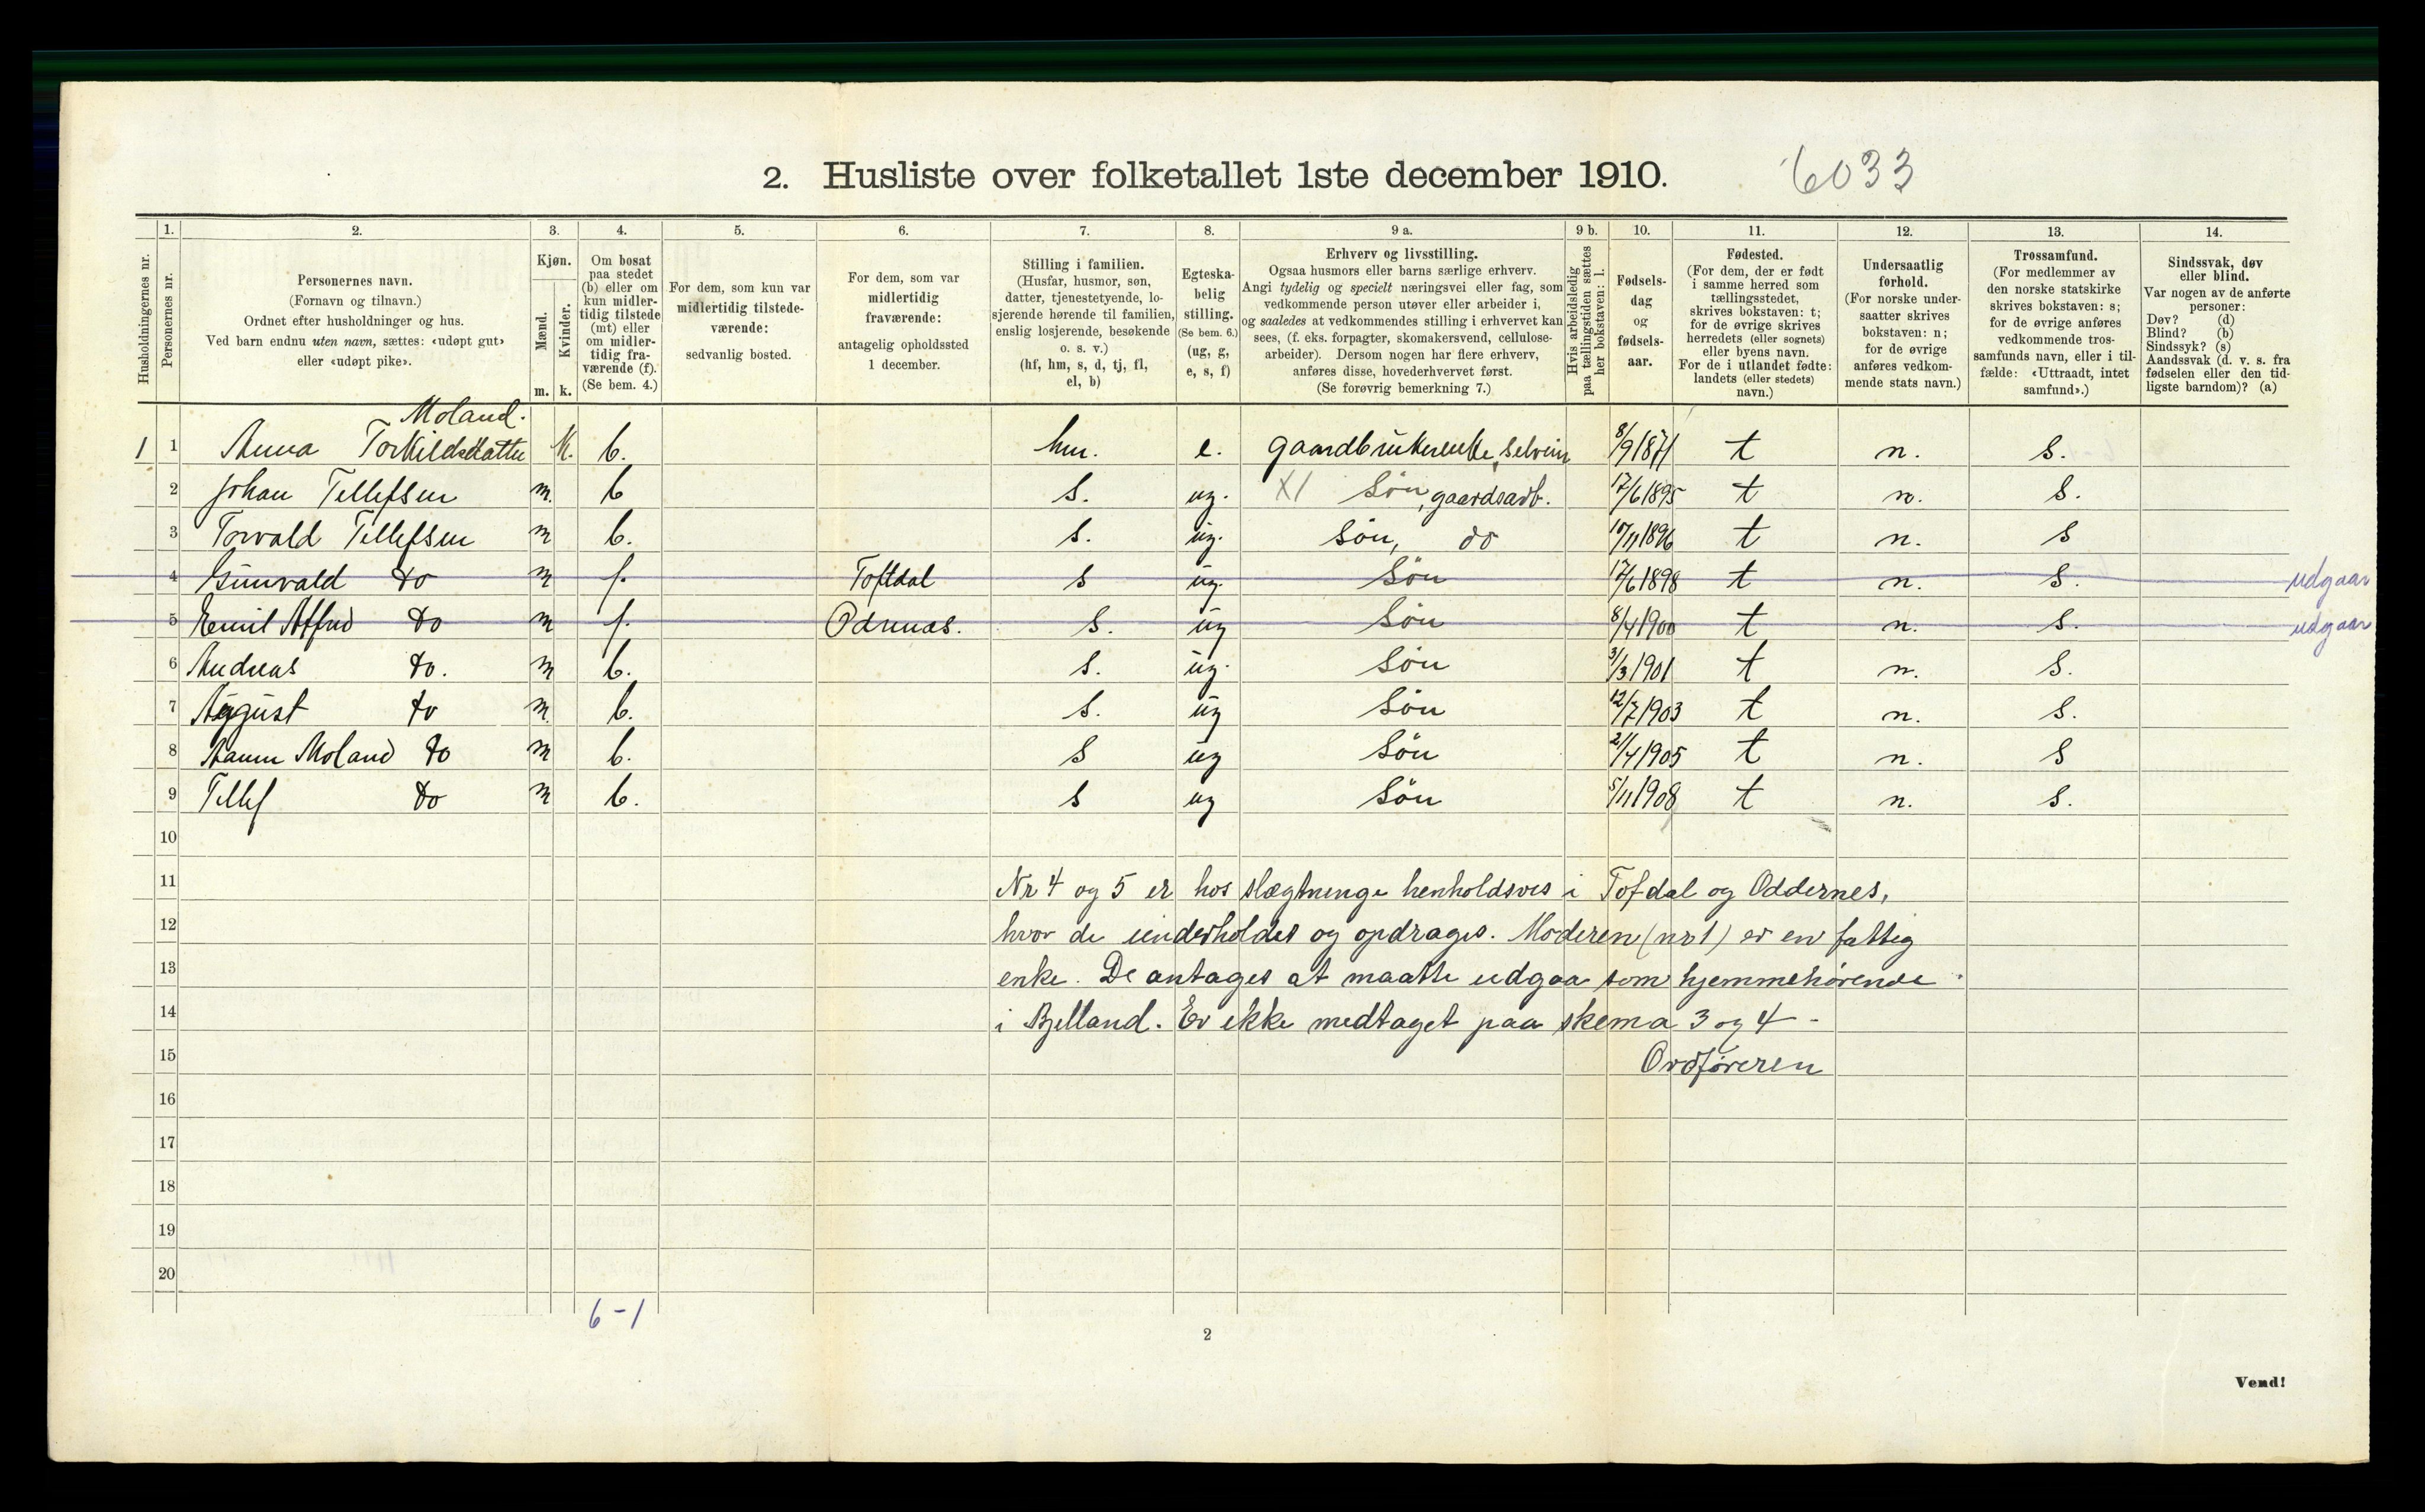 2. Husliste over folketallet 1ste december 1910.
6033
Husholdningernes nr.
1. Personernes nr.
2. Personernes navn.
(Fornavn og tilnavn.)
Ordnet efter husholdninger og hus.
Ved barn endnu uten navn, sættes: «udøpt gut»
eller «udøpt pike».
3. Kjøn.
Mænd. m.
Kvinder. k.
4. Om bosat
paa stedet
(b) eller om
kun midler-
tidig tilstede
(mt) eller
om midler-
tidig fra-
værende (f).
(Se bem. 4.)
5. For dem, som kun var
midlertidig tilstede-
værende:
sedvanlig bosted.
6. For dem, som var
midlertidig
fraværende:
antagelig opholdssted
1 december.
7. Stilling i familien.
(Husfar, husmor, søn,
datter, tjenestetyende, lo-
sjerende hørende til familien,
enslig losjerende, besøkende
o. s. v.)
(hf, hm, s, d, tj, fl,
el, b)
8. Egteska-
belig
stilling.
(Se bem. 6.)
(ug, g,
e, s, f)
9 a. Erhverv og livsstilling.
Ogsaa husmors eller barns særlige erhverv.
Angi tydelig og specielt næringsvei eller fag, som
vedkommende person utøver eller arbeider i,
og saaledes at vedkommendes stilling i erhvervet kan
sees, (f. eks. forpagter, skomakersvend, cellulose-
arbeider). Dersom nogen har flere erhverv,
anføres disse, hovederhvervet først.
(Se forøvrig bemerkning 7.)
9 b. Hvis arbeidsledig
paa tællingstiden sættes
her bokstaven: l.
10. Fødsels-
dag
og
fødsels-
aar.
11. Fødested.
(For dem, der er født
i samme herred som
tællingsstedet,
skrives bokstaven: t;
for de øvrige skrives
herredets (eller sognets)
eller byens navn.
For de i utlandet fødte:
landets (eller stedets)
navn.)
12. Undersaatlig
forhold.
(For norske under-
saatter skrives
bokstaven: n;
for de øvrige
anføres vedkom-
mende stats navn.)
13. Trossamfund.
(For medlemmer av
den norske statskirke
skrives bokstaven: s;
for de øvrige anføres
vedkommende tros-
samfunds navn, eller i til-
fælde: «Uttraadt, intet
samfund».)
14. Sindssvak, døv
eller blind.
Var nogen av de anførte
personer:
Døv? (d)
Blind? (b)
Sindssyk? (s)
Aandssvak (d. v. s. fra
fødselen eller den tid-
ligste barndom)? (a)
Moland.
1 1 Anna Torkildsdatter K. b. hm. e. gaardbrukerenke, selveier 8/9 1871 t n. S.
2 Johan Tellefsen m. b s. ug. X1 Søn, gaardsarb. 17/6 1895 t n. S.
3 Torvald Tellefsen m b. s. ug. Søn, do 10/11 1896 t n. S
4 Gunvald do m f. Toftdal s ug. Søn 17/6 1898 t n. S. udgaar
5 Emil Alfred do m f. Odrnæs. s. ug Søn 8/4 1900 t n. S. udgaar
6 Andreas do. m b. s. ug. Søn 3/3 1901 t n. S.
7 August do m. b. s. ug Søn 12/7 1903 t n. S.
8 Aanen Moland do m b. s ug Søn 2/4 1905 t n. S
9 Tellef do m b. s ug Søn 5/11 1908 t n. S.
10
11 Nr 4 og 5 er hos slægtninge henholdsvis i Tofdal og Oddernes,
12 hvor de underholdes og opdrages. Moderen (nr 1) er en fattig
13 enke. De antages at maatte udgaa som hjemmehørende
14 i Bjelland. Er ikke medtaget paa skema 3 og 4 -
15 Ordføreren
16
17
18
19
20
6-1
2
Vend!